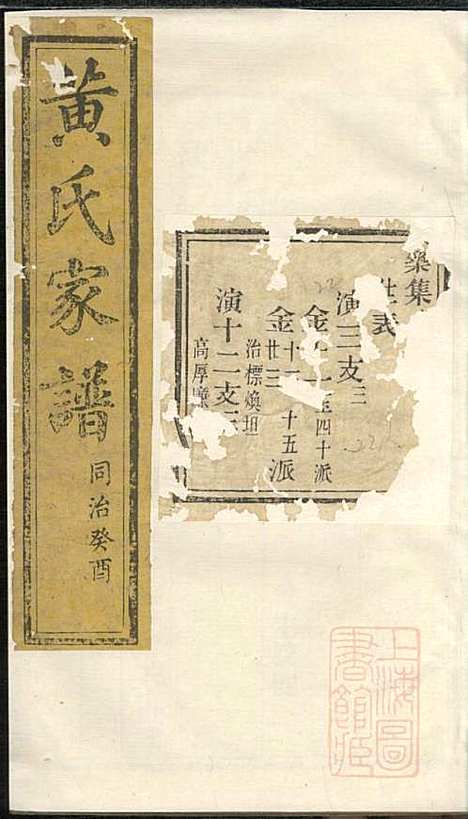 黄氏家譜
同治癸酉
樂集
世表
演三支三
金 至四十派
金十一 十五派
廿三
治標煥坦
演十二支三
高厚
上海圖書館藏